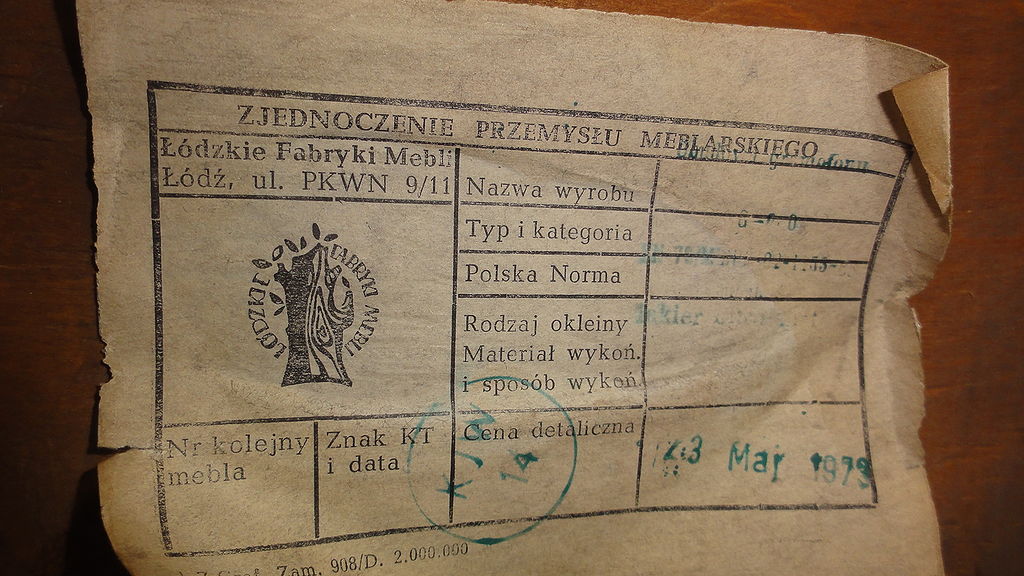 ZJEDNOCZENIE PRZEMYSŁU MEBLARSKIEGO
Łódzkie Fabryki Mebli
Łódź, ul. PKWN 9/11
ŁÓDZKIE FABRYKI MEBLI
Nazwa wyrobu
Typ i kategoria
Polska Norma
Rodzaj okleiny
Materiał wykoń.
i sposób wykoń.
Nr kolejny
mebla
Znak KT
i data
KJW
14
Cena detaliczna
23 Maj 1979
Zam. 908/D. 2.000.000